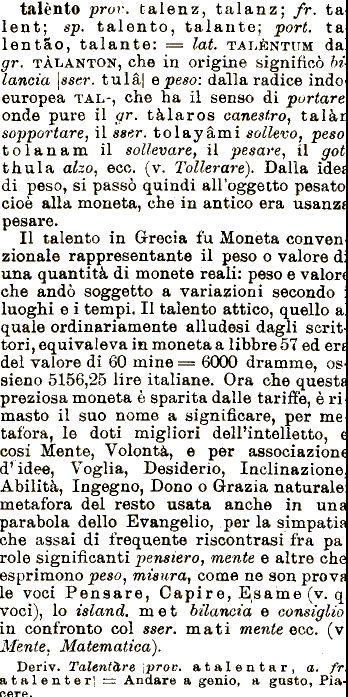 talènto prov. talenz, talanz; fr. ta
lent; sp. talento, talante; port. ta
lentão, talante: = lat. TALÈNTUM da
gr. TÀLANTON, che in origine significò bi
lancia |sser. tulâ| e peso: dalla radice indo
europea TAL-, che ha il senso di portare
onde pure il gr. tàlaros canestro, talàs
sopportare, il sser. tolayâmi sollevo, peso
tolanam il sollevare, il pesare, il got
thula alzo, ecc. (v. Tollerare). Dalla idea
di peso, si passò quindi all'oggetto pesato
cioè alla moneta, che in antico era usanza
pesare.
Il talento in Grecia fu Moneta conven
zionale rappresentante il peso o valore di
una quantità di monete reali: peso e valore
che andò soggetto a variazioni secondo
luoghi e i tempi. Il talento attico, quello a
quale ordinariamente alludesi dagli scrit-
tori, equivaleva in moneta a libbre 57 ed era
del valore di 60 mine = 6000 dramme, os-
sieno 5156,25 lire italiane. Ora che questa
preziosa moneta è sparita dalle tariffe, è ri-
masto il suo nome a significare, per me-
tafora, le doti migliori dell'intelletto, e
così Mente, Volontà, e per associazione
d'idee, Voglia, Desiderio, Inclinazione,
Abilità, Ingegno, Dono o Grazia naturale
metafora del resto usata anche in una
parabola dello Evangelio, per la simpatia
che assai di frequente riscontrasi fra pa
role significanti pensiero, mente e altre che
esprimono peso, misura, come ne son prova
le voci Pensare, Capire, Esame (v. q
voci), lo island. met bilancia e consiglio
in confronto col sser. mati mente ecc. (v
Mente, Matematica).
Deriv. Talentàre |prov. atalentar, a. fr.
atalenter| = Andare a genio, a gusto, Pia-
cere.